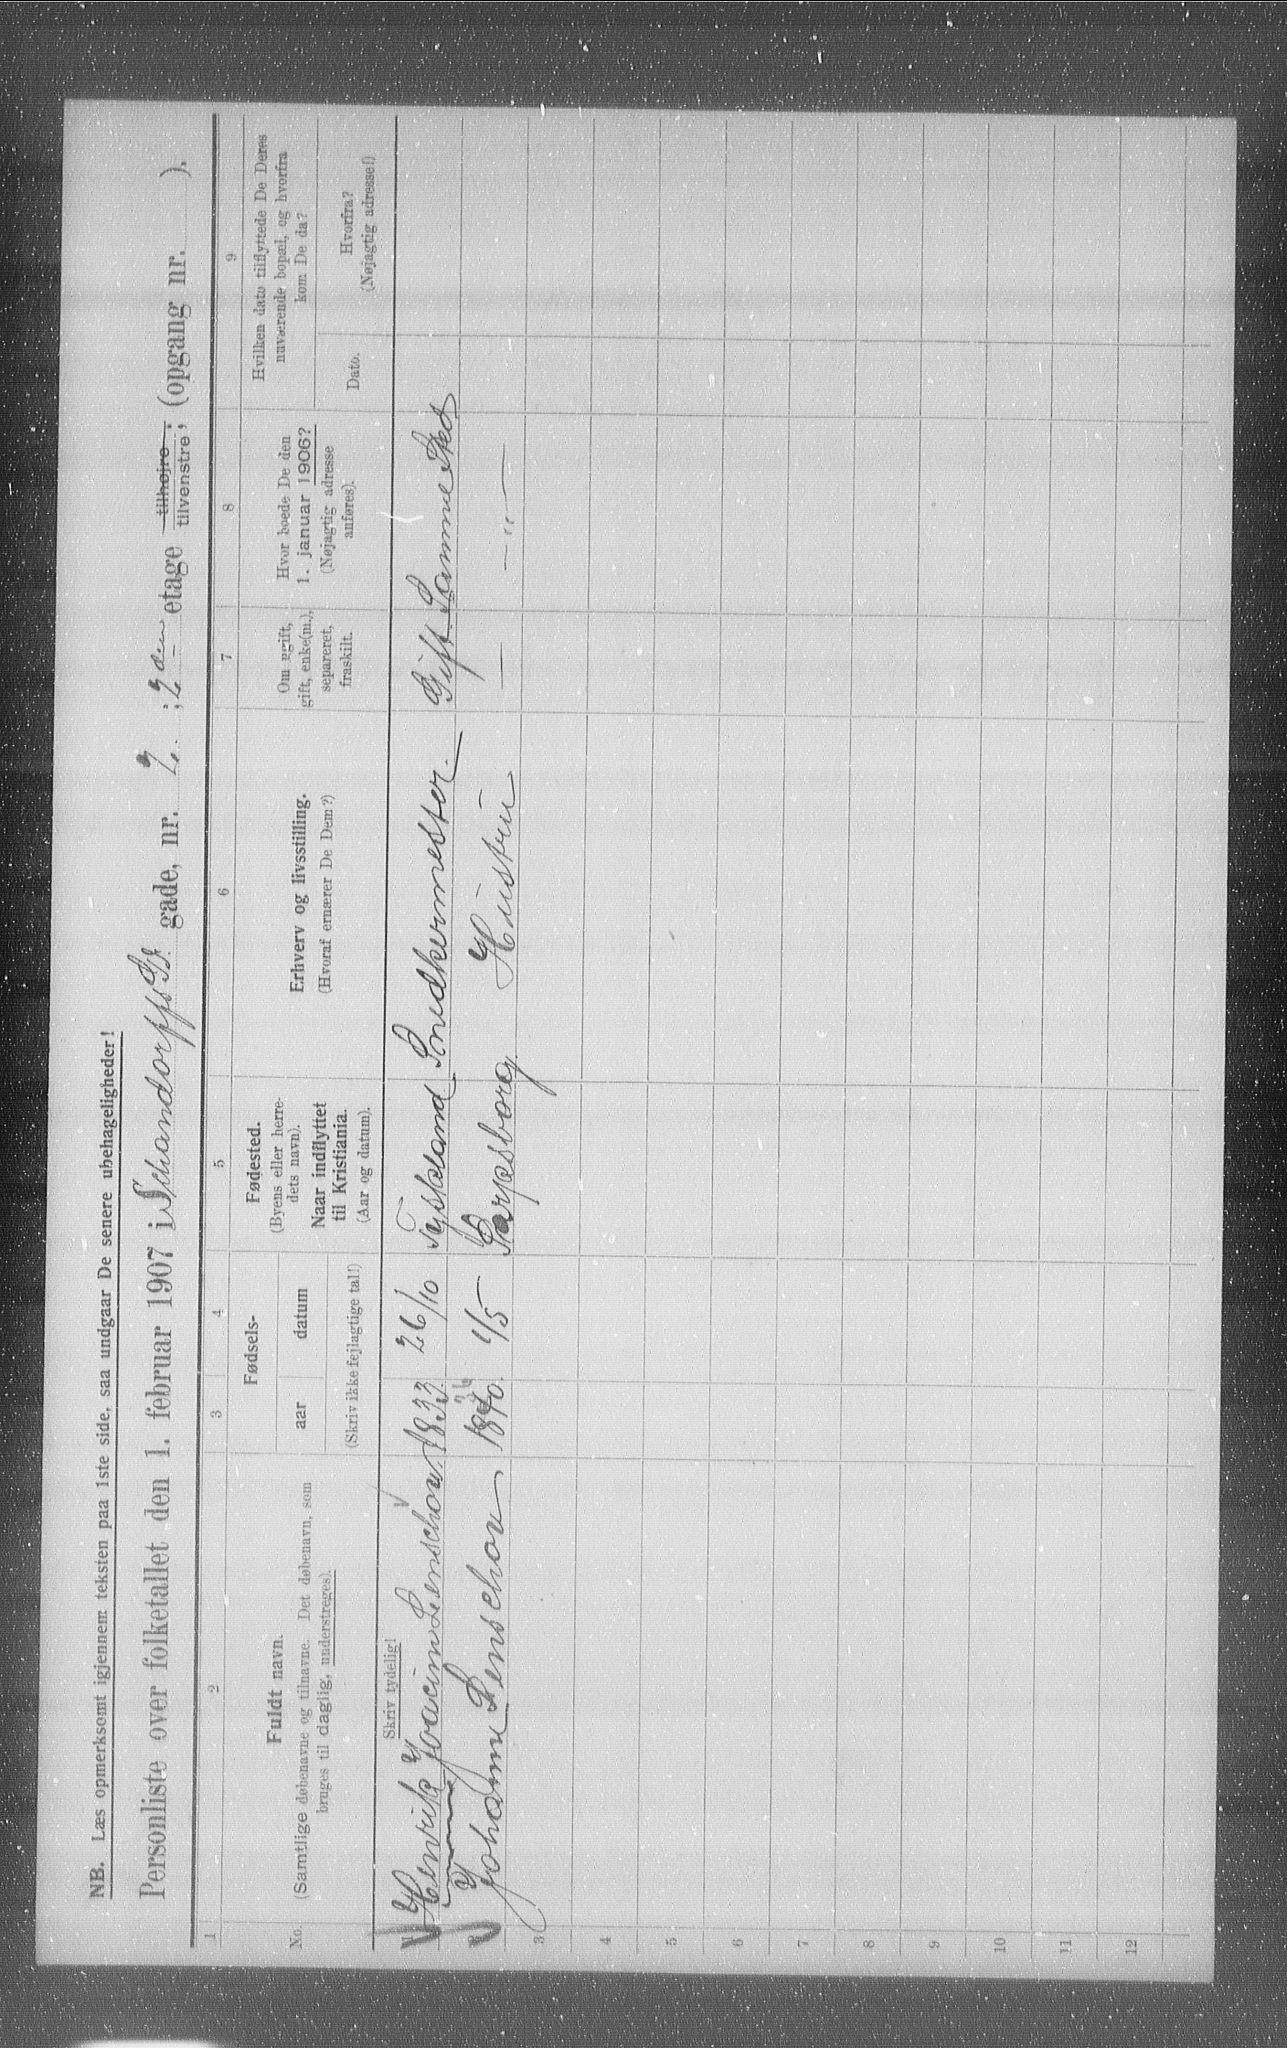 NB. Læs opmerksomt igjennem teksten paa 1ste side, saa undgaar De senere ubehageligheder!
Personliste over folketallet den 1. februar 1907 i Schandorffs Gt. gade, nr. 2 ; 2den etage tilhøjre, tilvenstre, (opgang nr. ).
1 2 3 4 5 6 7 8 9
No. Fuldt navn.
(Samtlige døbenavne og tilnavne. Det døbenavn, som
bruges til daglig, understreges).
Skriv tydelig!
Fødsels-
aar datum
(Skriv ikke fejlagtige tal!)
Fødested.
(Byens eller herre-
dets navn).
Naar indflyttet
til Kristiania.
(Aar og datum).
Erhverv og livsstilling.
(Hvoraf ernærer De Dem?)
Om ugift,
gift, enke(m.),
separeret,
fraskilt.
Hvor boede De den
1. januar 1906?
(Nøjagtig adresse
anføres).
Hvilken dato tilflyttede De Deres
nuværende bopæl, og hvorfra
kom De da?
Dato.
Hvorfra?
(Nøjagtig adresse!)
1 Henrik Joacim Lenschow 1833 26/10 Tyskland Snedkermester. Gift Samme Sted
2 Johanne Lenschow 1840. 36 1/5 Sarpsborg Hustru — — „ —
3
4
5
6
7
8
9
10
11
12